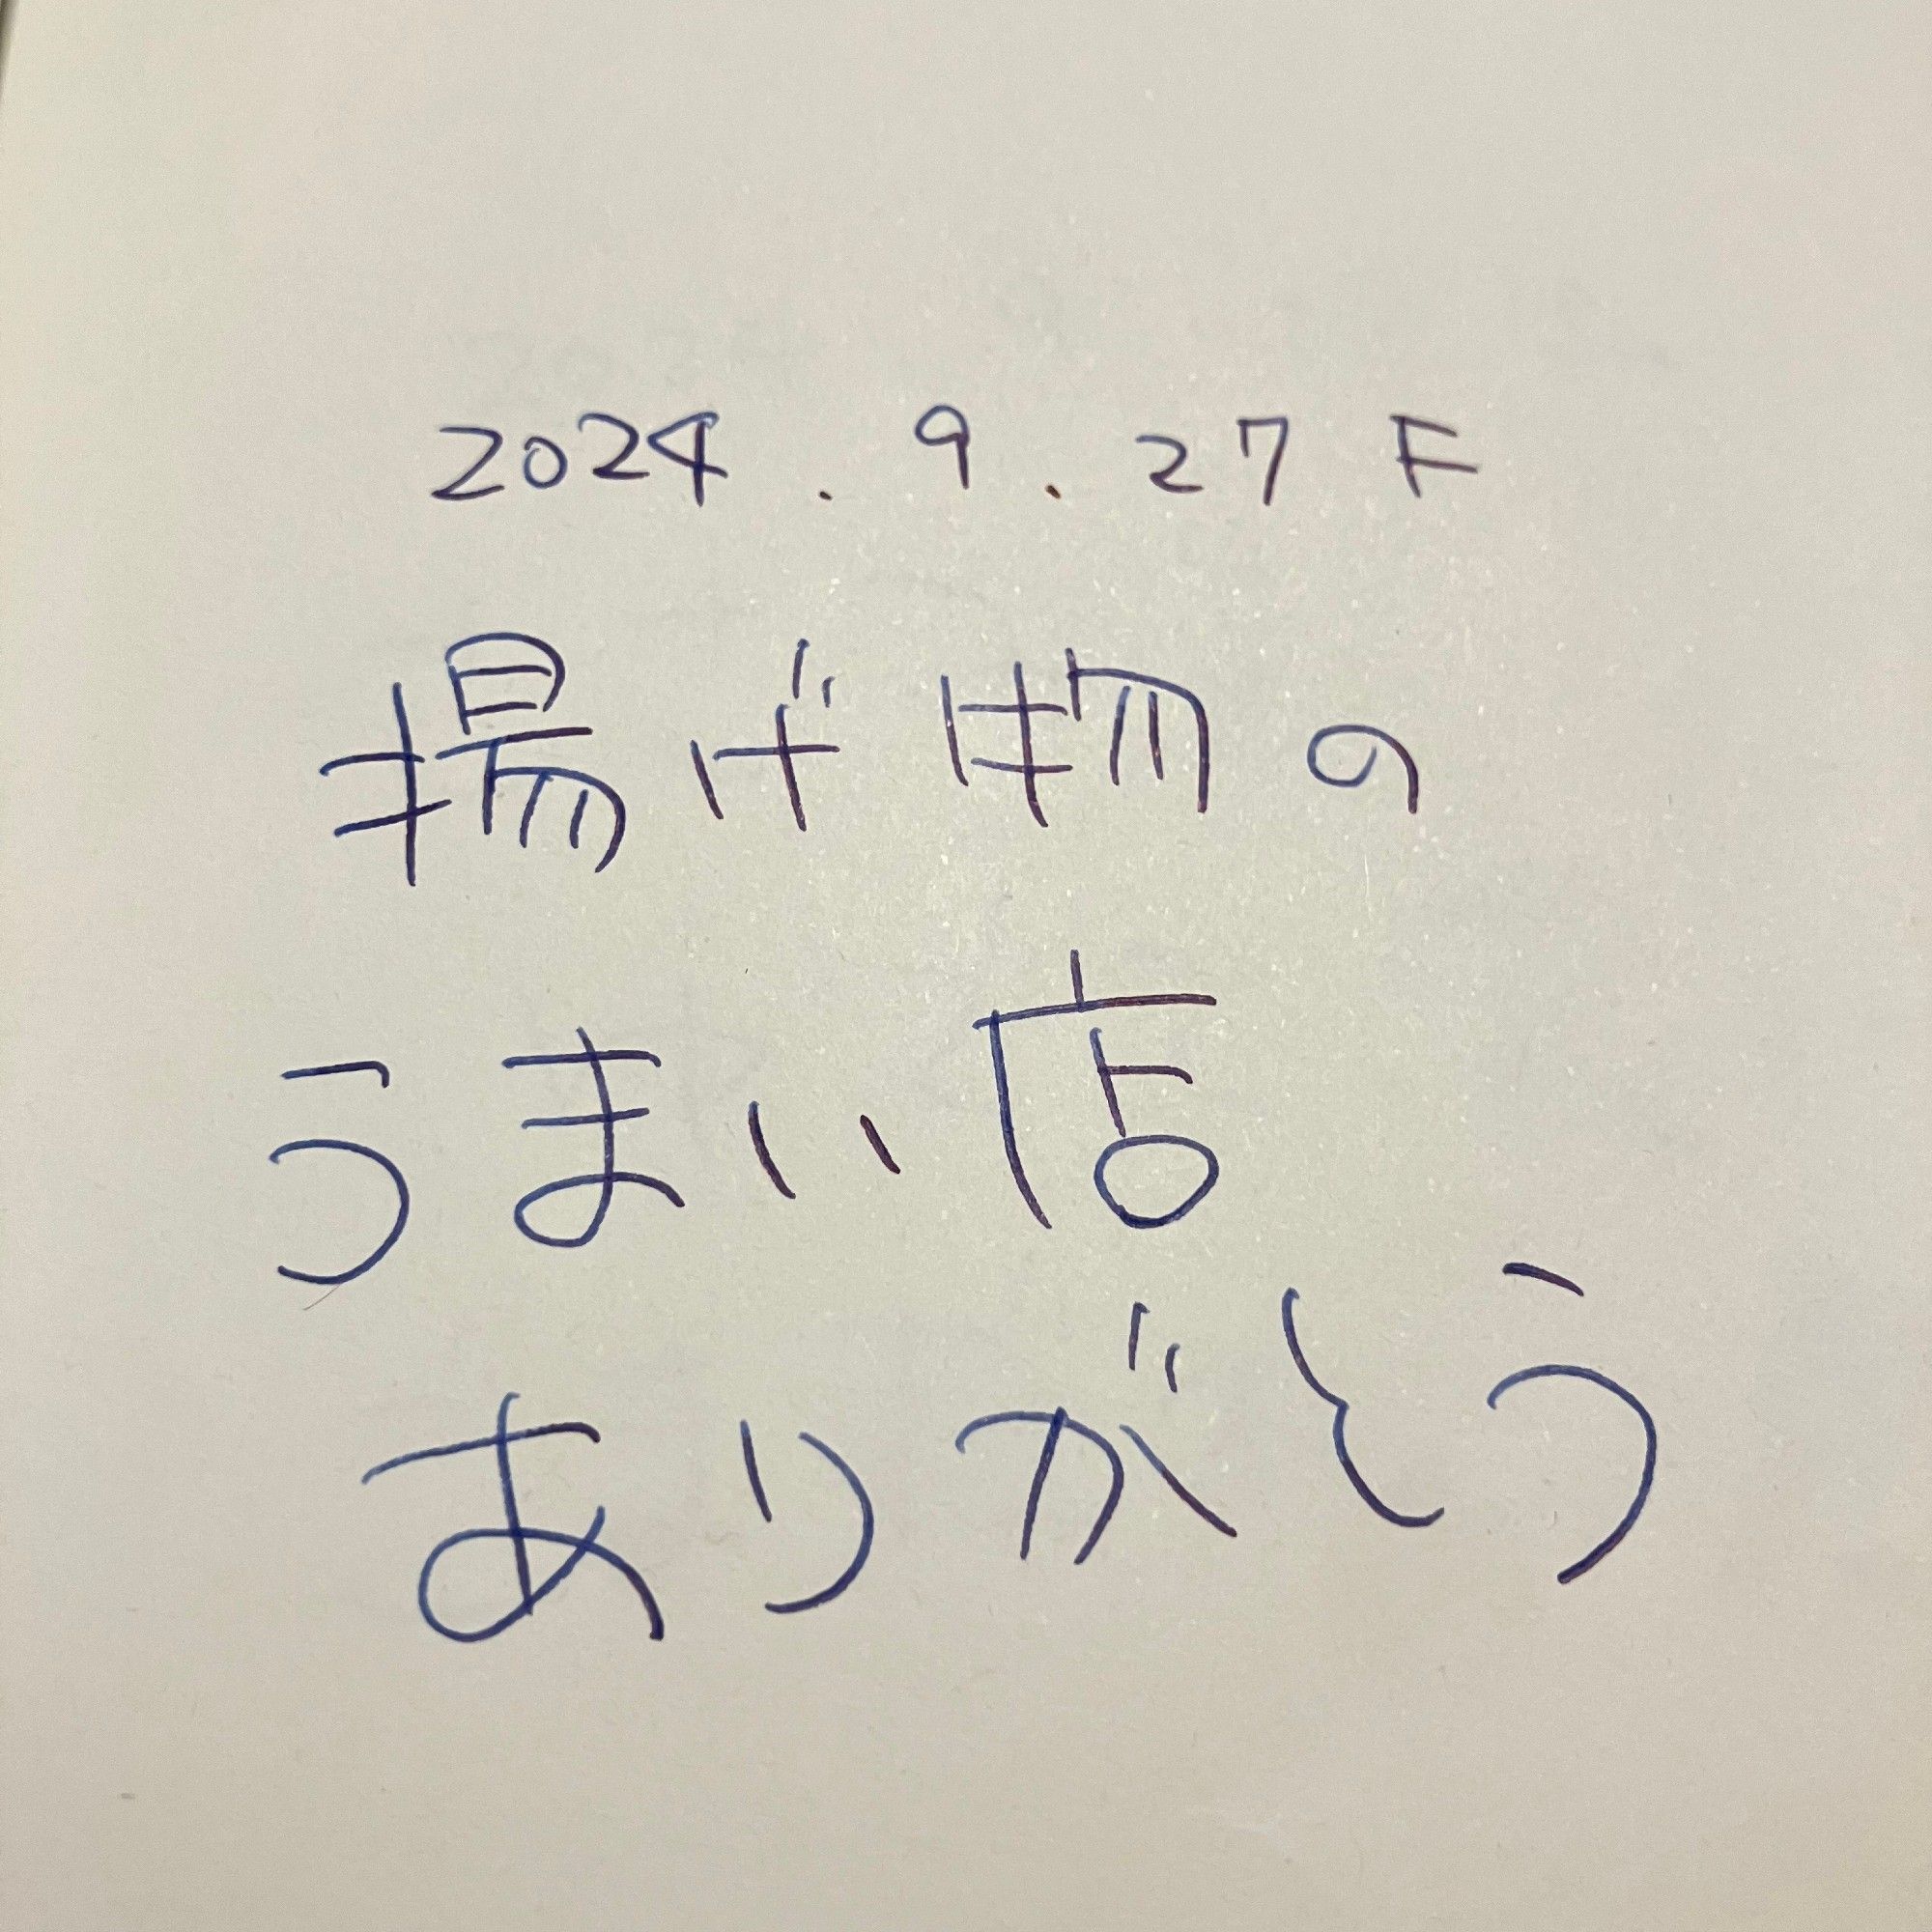 2024.9.27 F
揚げ物の
うまい店
ありがとう